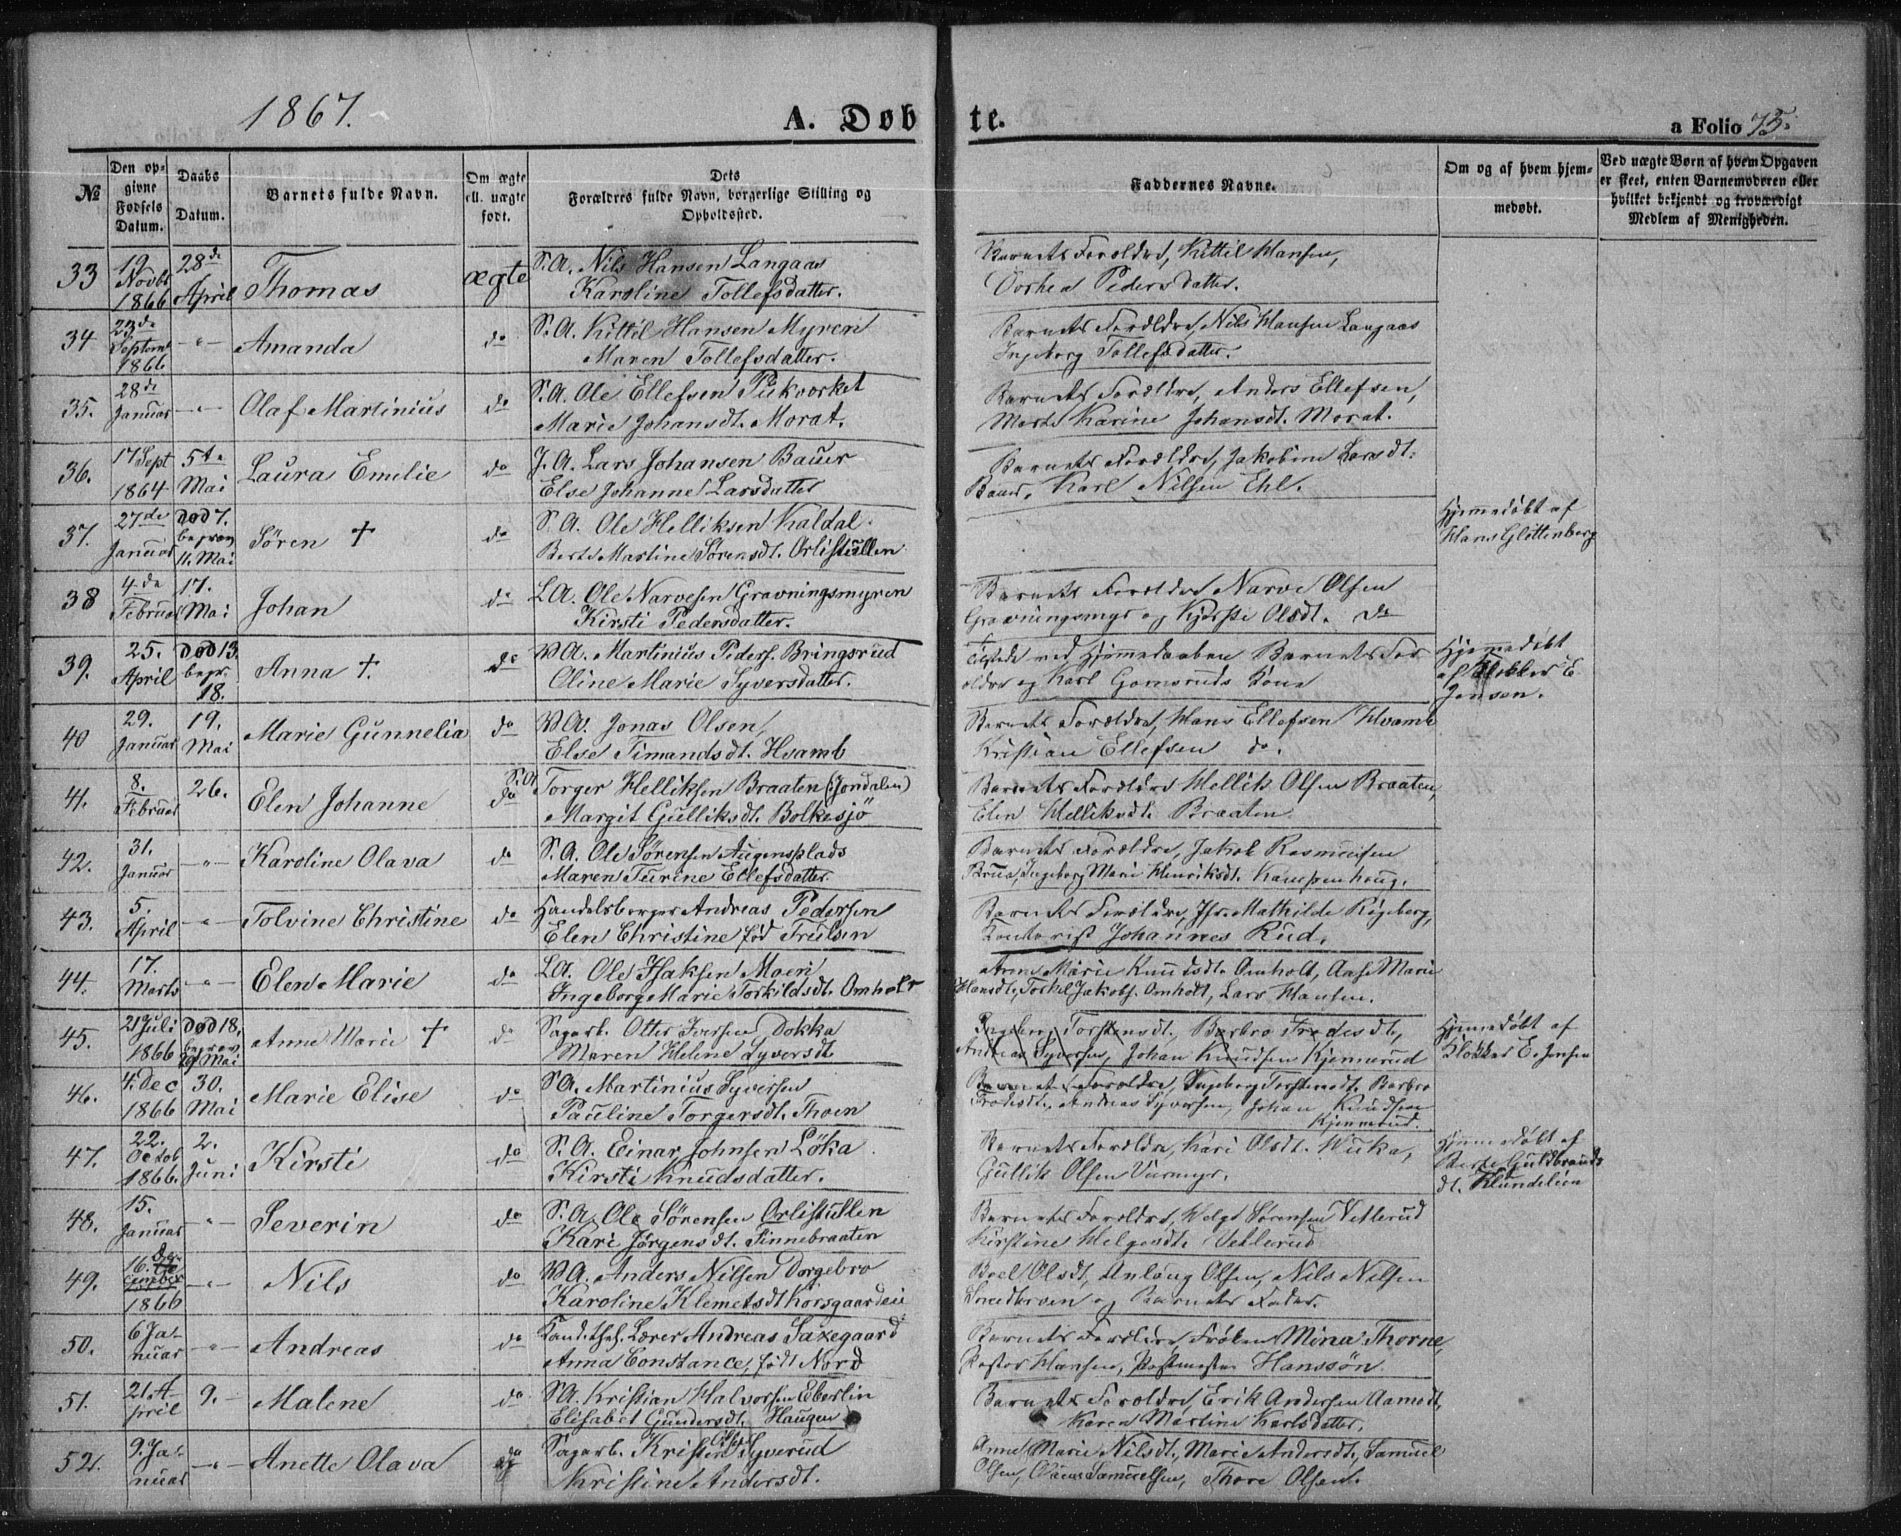 1867.
A. Døb
te.
a Folio 75.
№
Den op-
givne
Fødsels
Datum.
Daabs
Datum.
Barnets fulde Navn.
Om ægte
ell. uægte
født.
Dets
Forældres fulde Navn, borgerlige Stilling og
Opholdssted.
Faddernes Navne.
Om og af hvem hjem-
medøbt.
Ved uægte Børn af hvem Opgaven
er skeet, enten Barnemoderen eller
hvilket bekjendt og troværdigt
Medlem af Menigheden.
33
19
Novbr
1866
28de
April
Thomas
ægte
S.A. Nils Hansen Langaas
Karoline Tollefsdatter.
Barnets Forældre, Kittil Hansen,
Dorhea Pedersdatter.
34
23de
Septem
1866
-"-
Amanda
do
S.A. Kittil Hansen Myren
Maren Tollefsdatter.
Barnets Forældre, Nils Hansen Langaas
Ingeborg Tollefsdatter.
35.
28de
Januar
-"-
Olaf Martinius
do
S.A. Ole Ellefsen Pukværket
Marie Johansdt. Morat.
Barnets Forældre, Anders Ellefsen,
Marte Karine Johansdt. Morat.
36.
17 Sept
1864
5te
Mai
Laura Emilie
do
J.A. Lars Johansen Bauer
Else Johanne Larsdatter
Barnets Forældre, Jakobine Larsdt.
Bauer, Karl Nilsen Ehl.
37.
27de
Januar
død 7.
begrav
11. Mai
Søren †
do
S.A. Ole Helliksen Kaldal.
Berte Martine Sørensdt. Orlistullen
Hjemmedøbt af
Hans Glittenberg
38
4de
Februar
17.
Mai
Johan
do
L.A. Ole Narvesen Gravningsmyren
Kirsti Pedersdatter.
Barnets Forældre Narve Olsen
Gravningsmyr og Kjersti Olsdt. do
39.
25.
April
død 13.
begr.
18.
Anna †.
do
V.A. Martinius Peders. Bringsrud
Oline Marie Syversdatter.
Tilstede ved Hjemmedaaben Barnets For
ældre og Karl Gomsruds Kone
Hjemmedøbt
af Klokker E.
Jensen.
40
29.
Januar
19.
Mai
Marie Gunnelia
do
V.A. Jonas Olsen,
Else Simandsdt. Hvamb
Barnets Forældre, Hans Ellefsen Hvamb
Kristian Ellefsen do.
41.
8.
Februar
26.
Elen Johanne
do
S.A. Torger Helliksen Braaten (Jondalen)
Margit Gulliksdt. Bolkesjö
Barnets Forældre Hellik Olsen Braaten,
Elen Helliksdt. Braaten.
42.
31.
Januar
-"-
Karoline Olava
do
S.A. Ole Sørensen Augensplads
Maren Turine Ellefsdatter
Barnets Forældre, Jakob Rasmussen
Brua, Ingeborg Marie Henriksdt. Kampenhaug.
43.
5.
April
-"-
Tolvine Christine
do
Handelsborger Andreas Pedersen
Elen Christine fød Trulsen
Barnets Forældre, Jfr. Mathilde Rögeberg,
Kontorist Johannes Rud.
44.
17.
Marts
-"-
Elen Marie
do
L.A. Ole Isaksen Moen
Ingeborg Marie Torkildsdt. Omholt
Anne Marie Knudsdt. Omholt, Aase Marie
Hansdt, Torkel Jakobs. Omholt, Lars Hansen.
45.
21 Juli
1866
død 18.
begrav
29 Mai
Anne Marie †
do
Sagarb. Otter Iversen Dokka
Maren Helene Syversdt
Ingeborg Torstensdt., Barbro Frodesdt.,
Andreas Syversen, Johan Knudsen Kjennerud
Hjemmedøbt af
Klokker E. Jensen
46.
4. Dec
1866
30.
Mai
Marie Elise
do
S.A. Martinius Syversen
Pauline Torgersdt. Thoen
Barnets Forældre, Ingeborg Torstensdt. Barbro
Frodesdt., Andreas Syversen, Johan Knudsen
Kjennerud.
47.
22.
Octob
1866.
2.
Juni
Kirsti
do
S.A. Einar Johnsen Löka
Kirsti Knudsdatter.
Barnets Forældre, Kari Olsdt. Wika,
Gullik Olsen Varmyr.
Hjemmedøbt af
Berte Guldbrands
dt. Klundelien
48.
15.
Januar
-"-
Severin
do
S.A. Ole Sörensen Orlistullen
Kari Jörgensdt. Finnebraaten
Barnets Forældre, Helge Sørensen Vetlerud
Kirstine Helgesdt. Vetlerud
49.
16. De
cember
1866
-"-
Nils
do
V.A. Anders Nilsen Dorgebro
Karoline Klemetsdt Korsgaardeie
Boel Olsdt, Anlaug Olsen, Nils Nilsen
og Barnets Fader.
50.
6 Ja-
nuar
-"-
Andreas
do
Kand. thel. Lærer Andreas Saxegaard
Anna Constance, født Nord
Barnets Forældre, Frøken Mina Thorne,
Pastor Hansen, Postmester Hanssön.
51.
21. A-
pril
9.
Malene
do
S.A. Kristian Halvorsen Eberlin
Elisabet Gundersdt. Haugen
Barnets Forældre, Erik Andersen Aamodt,
Karen Martine Karlsdatter.
52.
9. Ja-
nuar
-"-
Anette Olava
do
Sagarb. Kristen Olsen Syverud
Kristine Andersdt.
Anne Marie Nilsdt., Marie Andersdt., Samuel
Olsen, Samuelsen, Thore Olsen.